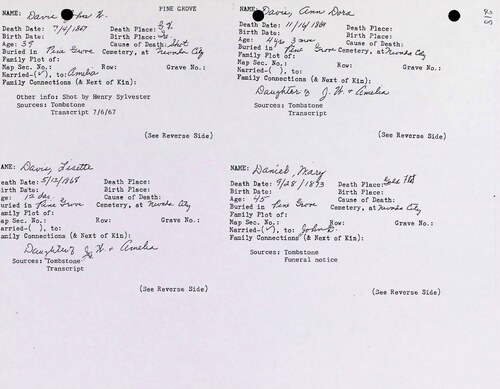 PINE GROVE
NAME: Davis John W.
Death Date: 7/4/1867 Death Place: G.V.
Birth Date: Birth Place:
Age: 39 Cause of Death: Shot
Buried in Pine Grove Cemetery, at Nevada City
Family Plot of:
Map Sec. No.: Row: Grave No.:
Married-(✓), to: Amelia
Family Connections (& Next of Kin):
Other info: Shot by Henry Sylvester
Sources: Tombstone
Transcript 7/6/67
(See Reverse Side)
NAME: Davis, Ann Dora
Death Date: 11/14/1860 Death Place:
Birth Date: Birth Place:
Age: 4 yr 3 mo Cause of Death:
Buried in Pine Grove Cemetery, at Nevada City
Family Plot of:
Map Sec. No.: Row: Grave No.:
Married-( ), to:
Family Connections (& Next of Kin):
Daughter of J. W. & Amelia
Sources: Tombstone
Transcript
(See Reverse Side)
AME: Davis, Lisette
eath Date: 5/12/1865 Death Place:
irth Date: Birth Place:
ge: 12 da Cause of Death:
uried in Pine Grove Cemetery, at Nevada City
amily Plot of:
ap Sec. No.: Row: Grave No.:
arried-( ), to:
amily Connections (& Next of Kin):
Daughter of J. W. & Amelia
Sources: Tombstone
Transcript
(See Reverse Side)
NAME: Daniel, Mary
Death Date: 9/28/1873 Death Place: Gold Flat
Birth Date: Birth Place:
Age: 45 Cause of Death:
Buried in Pine Grove Cemetery, at Nevada City
Family Plot of:
Map Sec. No.: Row: Grave No.:
Married-(✓), to: John
Family Connections (& Next of Kin):
Sources: Tombstone
Funeral notice
(See Reverse Side)